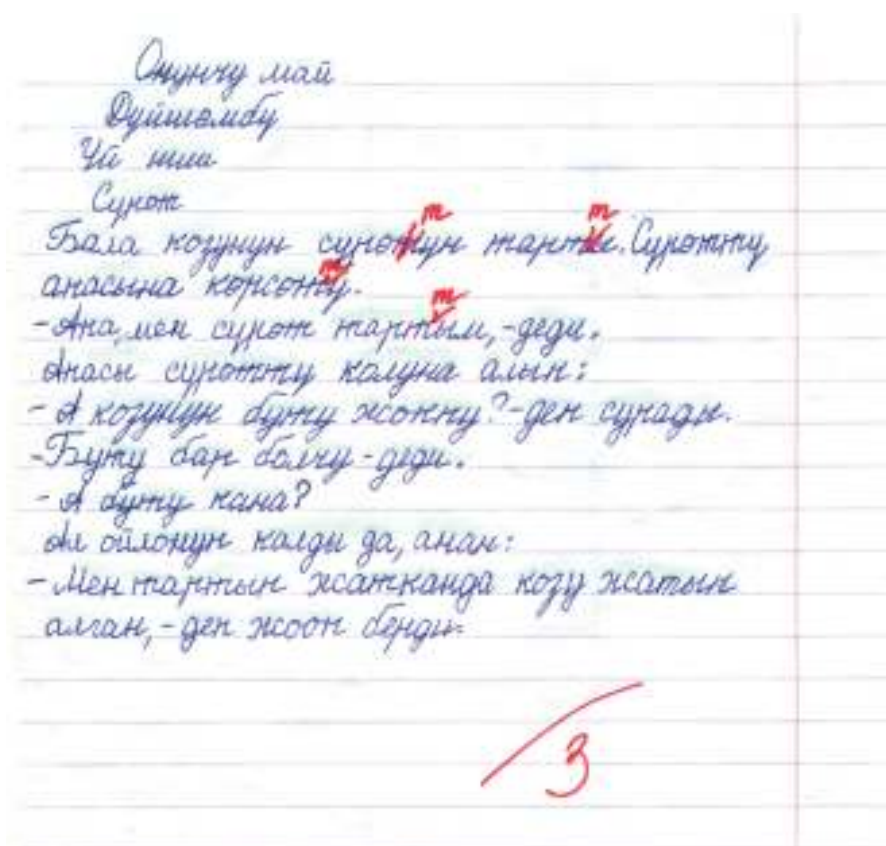 Онунчу май
Дүйшөмбү
Үй иши
Сүрөт
Бала козунун сүрөтүн тарты. Сүрөттү
апасына көрсөтү.
- Апа, мен сүрөт тартым, - деди.
Апасы сүрөттү колуна алып:
- А козунун буту жокпу? - деп сурады.
- Буту бар болчу - деди.
- А буту кана?
Ал ойлонуп калды да, анан:
- Мен тартып жатканда козу жатып
алган, - деп жооп берди.
т
т
т
т
3